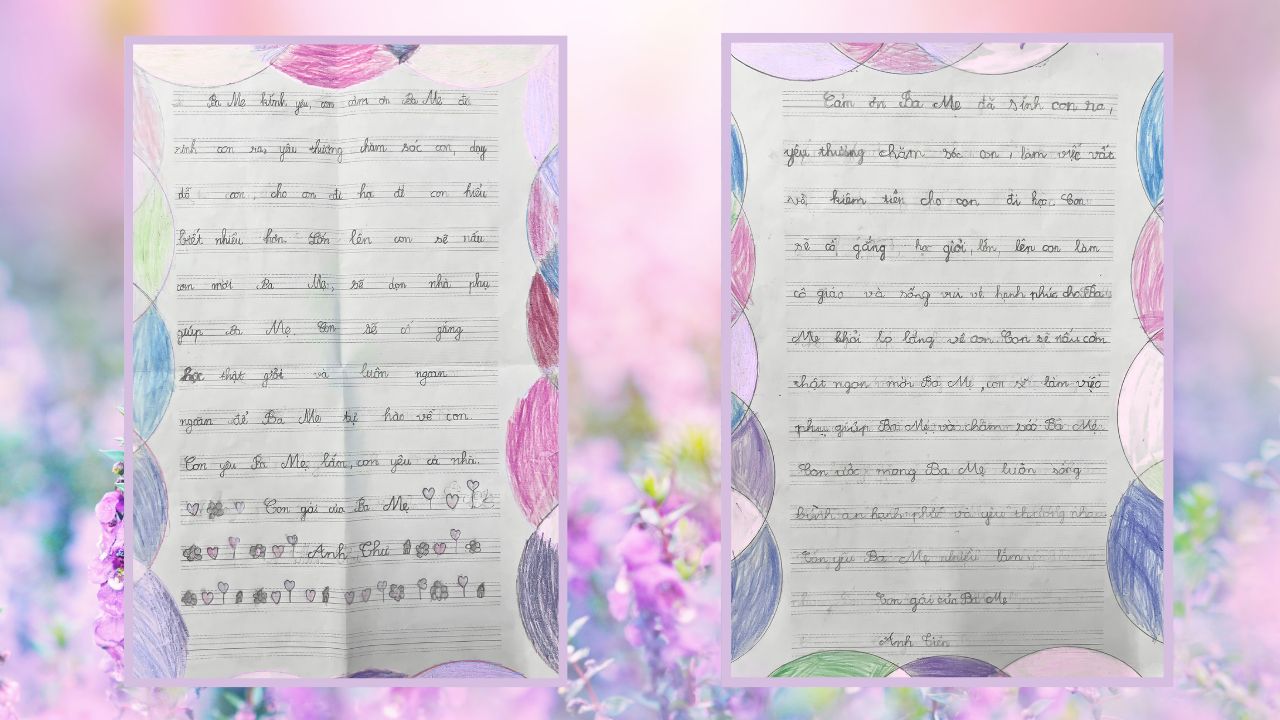 Ba Mẹ kính yêu con cảm ơn Ba Mẹ đã
sinh con ra, yêu thương chăm sóc con, dạy
dỗ con, cho con đi học để con hiểu
biết nhiều hơn. Lớn lên con sẽ nấu
cơm mời Ba Mẹ, sẽ dọn nhà phụ
giúp Ba Mẹ. Con sẽ cố gắng
học thật giỏi và luôn ngoan
ngoãn để Ba Mẹ tự hào về con.
Con yêu Ba Mẹ lắm, con yêu cả nhà.
Con gái của Ba Mẹ
Anh Thư
Cảm ơn Ba Mẹ đã sinh con ra,
yêu thương chăm sóc con, làm việc vất
vả kiếm tiền cho con đi học. Con
sẽ cố gắng học giỏi, lớn lên con làm
cô giáo và sống vui vẻ hạnh phúc cho Ba
Mẹ khỏi lo lắng về con. Con sẽ nấu cơm
thật ngon mời Ba Mẹ, con sẽ làm việc
phụ giúp Ba Mẹ và chăm sóc Ba Mẹ.
Con ước mong Ba Mẹ luôn sống
bình an hạnh phúc và yêu thương nhau.
Con yêu Ba Mẹ nhiều lắm
Con gái của Ba Mẹ
Anh Tiên